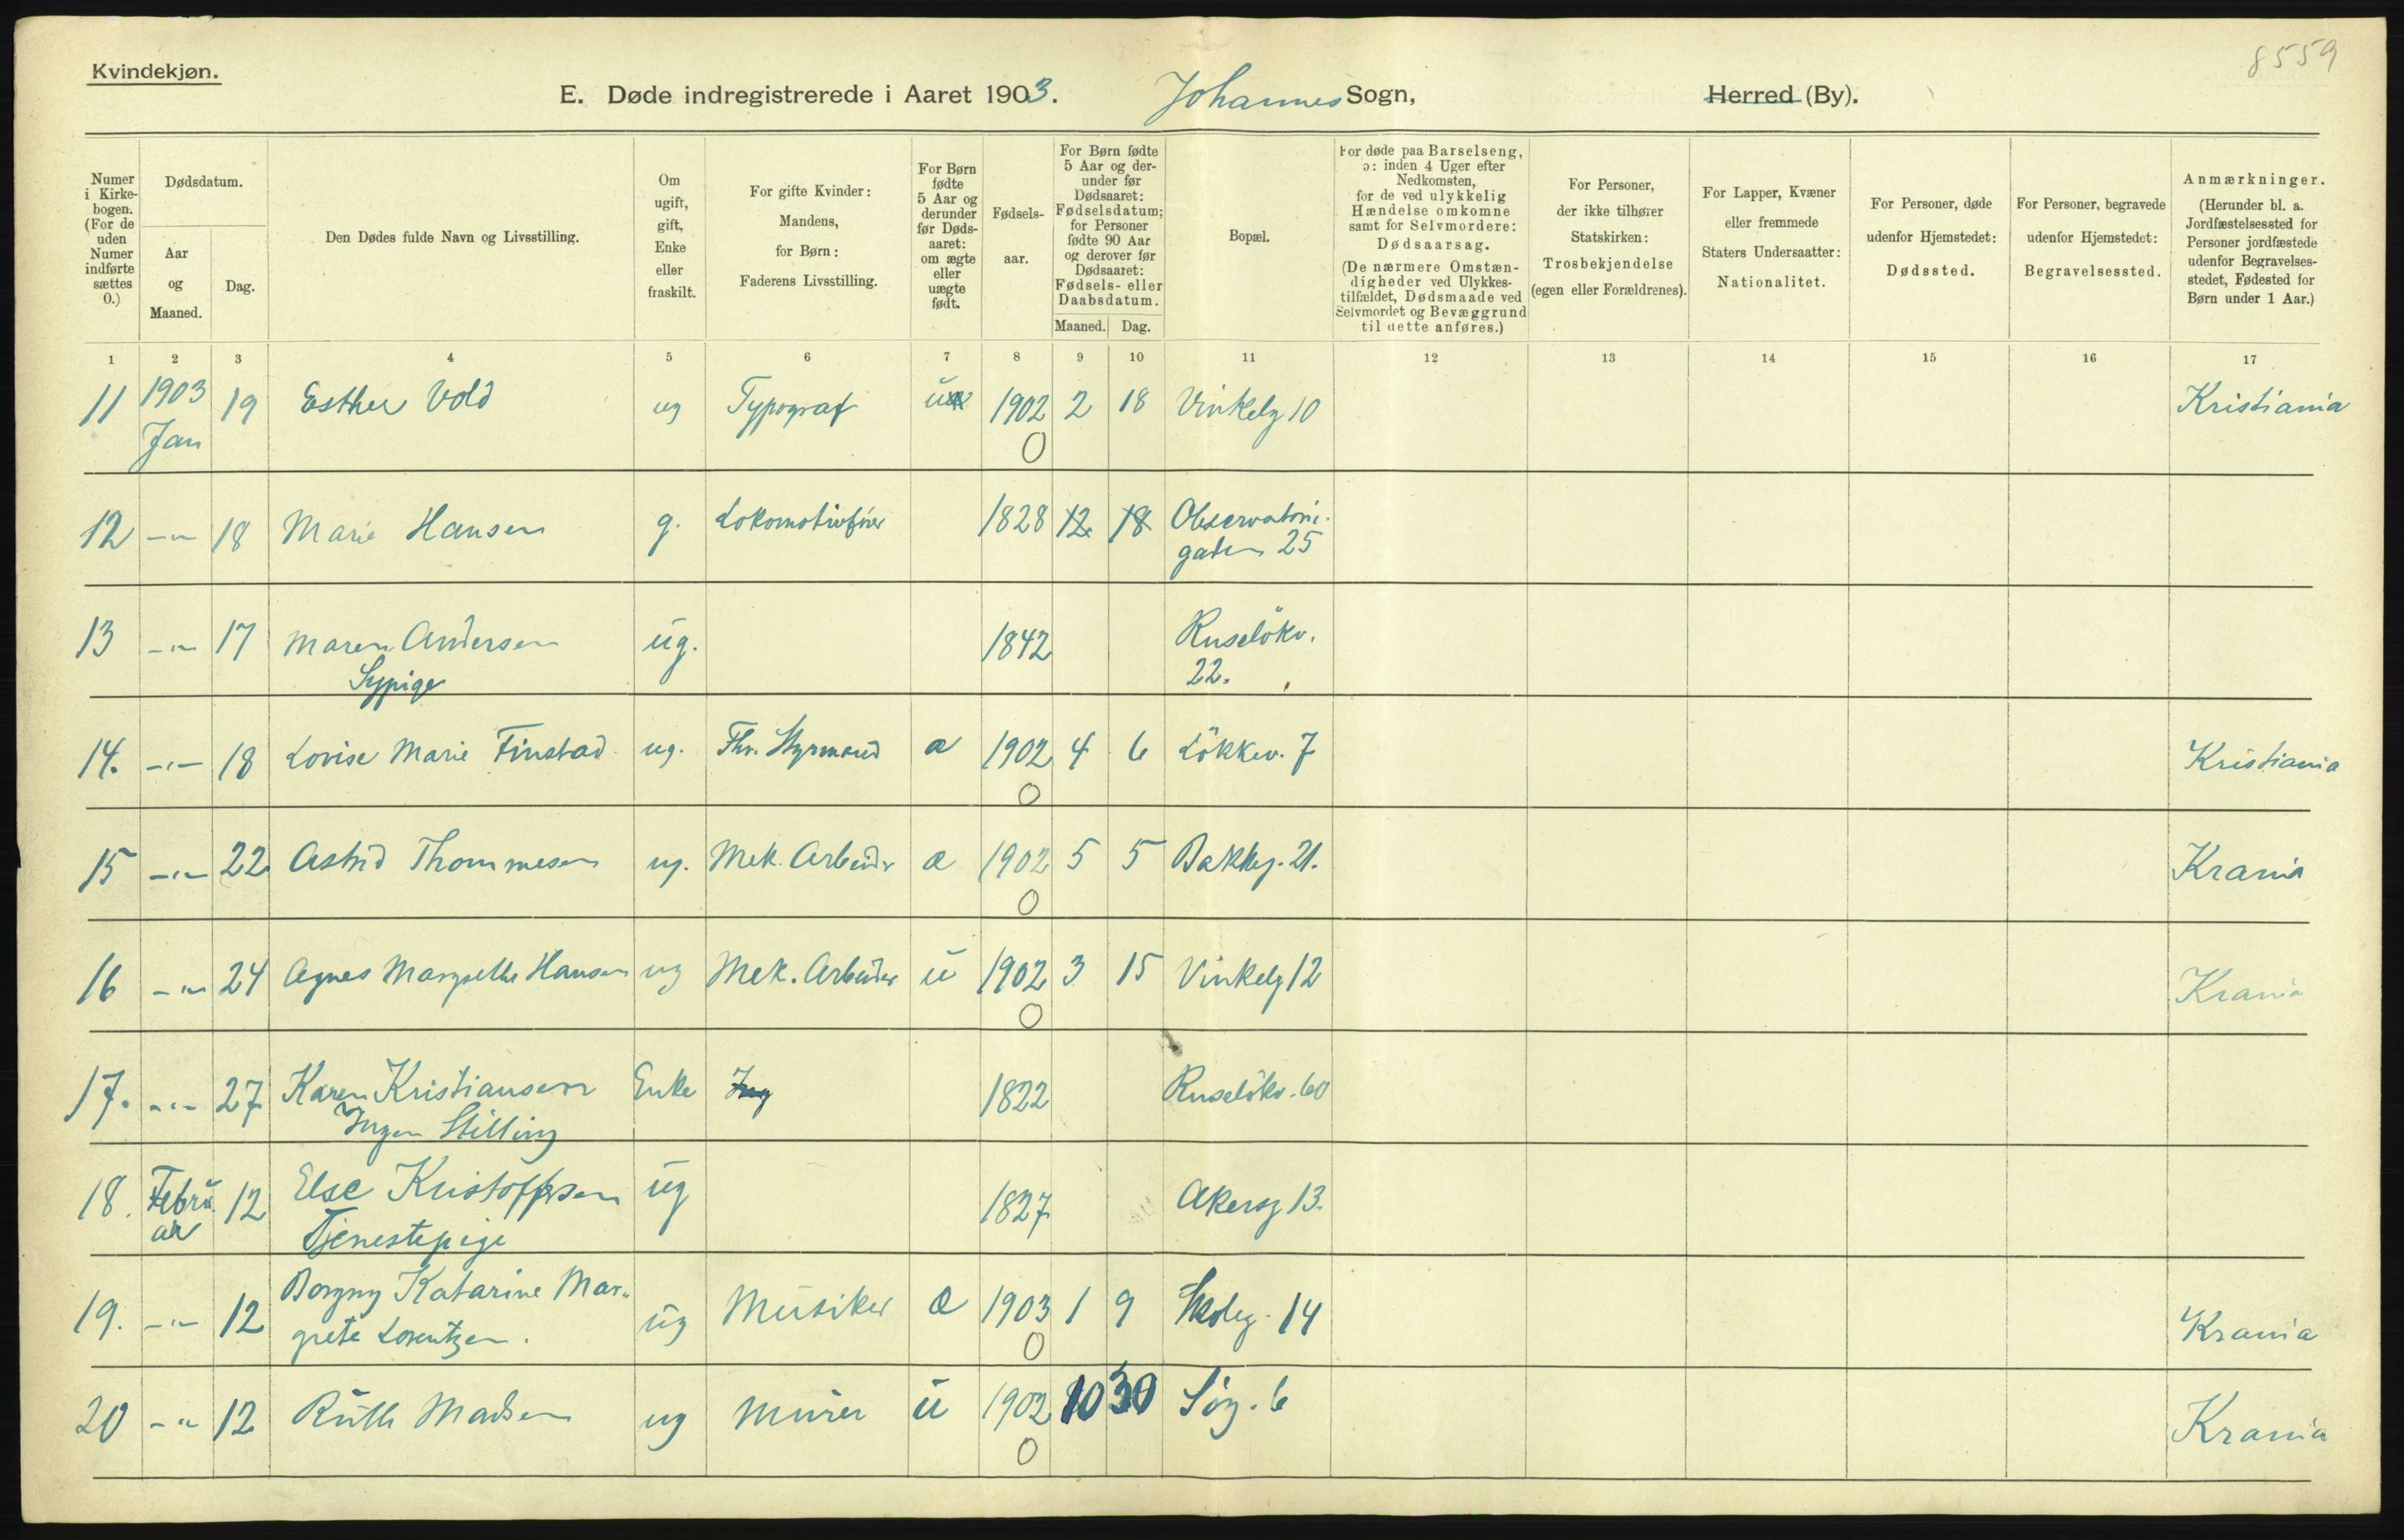 8559
Kvindekjøn.
E. Døde indregistrerede i Aaret 1903. Johannes Sogn, Herred (By).
Numer i Kirke-bogen. (For de uden Numer indførte sættes 0.)
Dødsdatum.
Aar og Maaned.
Dag.
Den Dødes fulde Navn og Livsstilling.
Om ugift, gift, Enke eller fraskilt.
For gifte Kvinder: Mandens, for Børn: Faderens Livsstilling.
For Børn fødte 5 Aar og derunder før Døds-aaret: om ægte eller uægte født.
Fødsels-aar.
For Børn fødte 5 Aar og der-under før Dødsaaret: Fødselsdatum; for Personer fødte 90 Aar og derover før Dødsaaret: Fødsels- eller Daabsdatum.
Maaned. Dag.
Bopæl.
For døde paa Barselseng, ɔ: inden 4 Uger efter Nedkomsten, for de ved ulykkelig Hændelse omkomne samt for Selvmordere: Dødsaarsag. (De nærmere Omstæn-digheder ved Ulykkes-tilfældet, Dødsmaade ved Selvmordet og Bevæggrund til dette anføres.)
For Personer, der ikke tilhører Statskirken: Trosbekjendelse (egen eller Forældrenes).
For Lapper, Kvæner eller fremmede Staters Undersaatter: Nationalitet.
For Personer, døde udenfor Hjemstedet: Dødssted.
For Personer, begravede udenfor Hjemstedet: Begravelsessted.
Anmærkninger. (Herunder bl. a. Jordfæstelsessted for Personer jordfæstede udenfor Begravelses-stedet, Fødested for Børn under 1 Aar.)
1 2 3 4 5 6 7 8 9 10 11 12 13 14 15 16 17
11 1903 Jan 19 Esther Vold ug Typograf u 1902 2 18 Vinkelg 10 Kristiania
0
12 -"- 18 Marie Hansen g. Lokomotivfører 1828 12 18 Observatorie-
gaden 25
13 -"- 17 Maren Andersen ug. 1842 Ruseløkv.
Sypige 22.
14. -"- 18 Lovise Marie Finstad ug. Fhv. Styrmand æ 1902 4 6 Løkkev. 7 Kristiania
0
15 -"- 22 Astrid Thommesen ug. Mek. Arbeider æ 1902 5 5 Bakkeg. 21. Krania
0
16 -"- 24 Agnes Margrethe Hansen ug Mek. Arbeider u 1902 3 15 Vinkelg 12 Krania
0
17. -"- 27 Karen Kristiansen Enke Ing 1822 Ruseløkv. 60
Ingen Stilling
18. Febru 12 Else Kristoffersen ug 1827 Akersg 13.
ar Tjenestepige
19. -"- 12 Borgny Katarine Mar-
grete Lorentzen. ug Musiker æ 1903 1 9 Skoleg. 14 Krania
0
20 -"- 12 Ruth Madsen ug Murer u 1902 10 30 Søg. 6 Krania
0